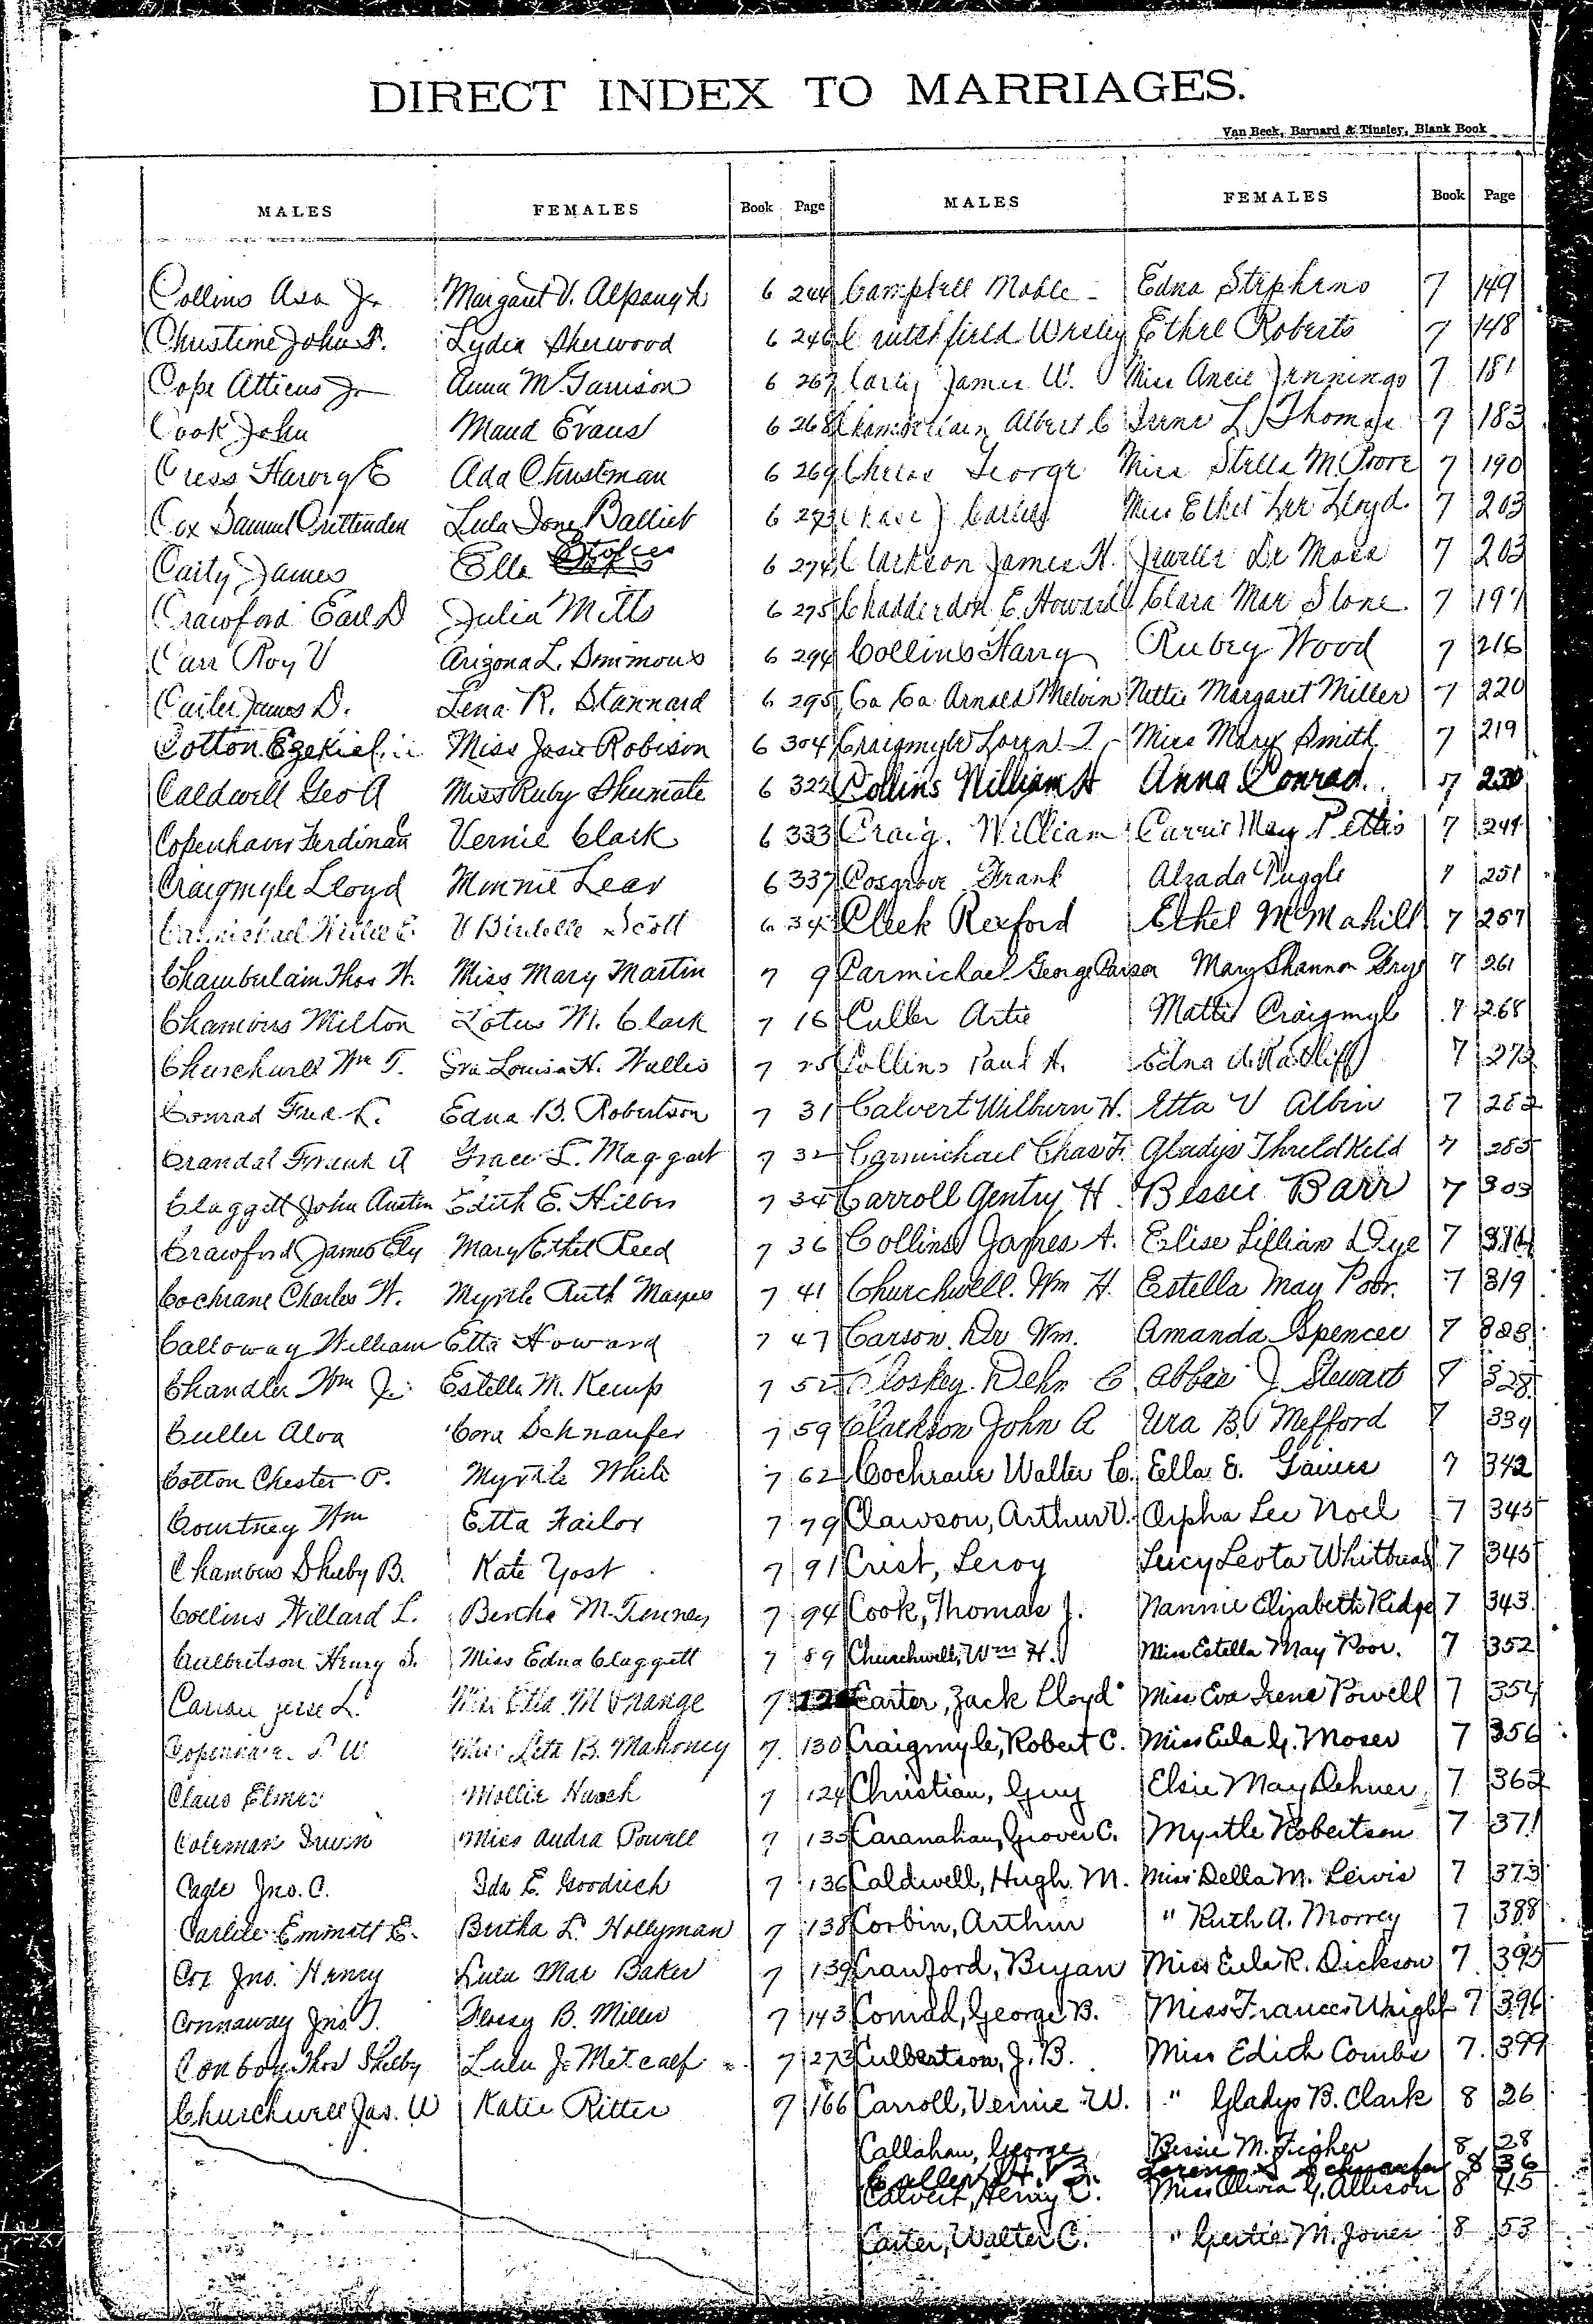 DIRECT INDEX TO MARRIAGES.
Van Beck, Barnard & Tinsley, Blank Book
MALES FEMALES Book Page MALES FEMALES Book Page
Collins Asa Jr Margaret V. Alspaugh 6 244
Christime John F. Lydia Sherwood 6 246
Cope Atticus Jr Anna M. Garrison 6 267
Cook John Maud Evans 6 268
Cress Harvey E Ada Christman 6 269
Cox Samuel Crittenden Lula Ione Balliet 6 273
Carty James Ella 6 274
Crawford Earl D Julia Mitts 6 275
Carr Roy V Arizona L. Simmons 6 294
James D. Lena R. Stannard 6 295
Cotton Ezekiel Miss Josie Robison 6 304
Caldwell Geo A Miss Ruby Shumate 6 322
Copenhaver Ferdinan Vernie Clark 6 333
Craigmyle Lloyd Minnie Lear 6 337
Carmichael Willie E. V Birdelle Scott 6 34
Chamberlain Thos W. Miss Mary Martin 7 9
Chambers Milton Lotus M. Clark 7 16
Churchwell Wm T. Louisa H. Wallis 7 25
Conrad Fred L. Edna B. Robertson 7 31
Crandal Frank A Grace L. Maggart 7 32
Claggett John Austin Edith E. Hilber 7 34
Crawford James Ely Mary Ethel Reed 7 36
Cochrane Charles W. Myrtle Ruth Mayes 7 41
Calloway William Etta Howard 7 47
Chandler Wm Jr. Estella M. Kemp 7 52
Culler Alva Cora Schnaufer 7 59
Cotton Chester P. Myrtle White 7 62
Courtney Wm Etta Failor 7 79
Chambers Shelby B. Kate Yost 7 91
Collins Willard L. Bertha M. Tenney 7 94
Culbertson Henry S. Miss Edna Claggett 7 89
Jesse L. Miss Etta M Orange 7
Copenhaver W Miss Leta B. Mahoney 7 130
Claus Elmer Mollie 7 124
Coleman Irwin Miss Audra Powell 7 135
Cagle Jno. C. Ida E. Goodrich 7 136
Carlile Emmett E. Bertha L. Hollyman 7 138
Cox Jno. Henry Lulu Mae Baker 7 139
Connaway Jno. T. Flossy B. Miller 7 143
Conboy Thos Shelby Lulu J. Metcalf 7 273
Churchwell Jas. W Katie Ritter 7 166
Campbell Noble Edna Stephens 7 149
Crutchfield Wesley Ethel Roberts 7 148
James W. Miss Ancie Jennings 7 181
Chamberlain Albert C Irene L. Thomas 7 183
George Miss Stella M. Poore 7 190
Miss Ethel Lee Lloyd 7 203
Clarkson James H. Jewelle De Moss 7 203
Chadderdon E. Howard Clara Mae Stone 7 197
Collins Harry Rubey Wood 7 216
Ca Ca Arnold Melvin Nettie Margaret Miller 7 220
Craigmyle Loren T. Miss Mary Smith 7 219
Collins William H Anna Conrad 7 230
Craig, William Carrie May Pettis 7 244
Cosgrove Frank Alzada Tuggle 7 251
Cleek Rexford Ethel McMahill 7 257
Carmichael George Carson Mary Shannon Frye 7 261
Culler Artie Mattie Craigmyle 7 268
Collins Paul H. Edna Ratliff 7 272
Calvert Wilburn H. Etta V Albin 7 282
Carmichael Chas F. Gladys Threldkeld 7 285
Carroll Gentry H. Bessie Barr 7 303
Collins James A. Elise Lillian Dye 7 314
Churchwell. Wm H. Estella May Poor. 7 319
Carson. Dr Wm. Amanda Spencer 7 323
Closkey. Dehn C Abbie J. Stewart 7 328
Clarkson John A Ura B. Mefford 7 339
Cochrane Walter C. Ella E. Gaines 7 342
Clawson, Arthur V. Orpha Lee Noel 7 345
Crist, Leroy Lucy Leota Whitbread 7 345
Cook, Thomas J. Nannie Elizabeth Ridge 7 343
Churchwell, Wm H. Miss Estella May Poor. 7 352
Carter, Zack Lloyd Miss Eva Irene Powell 7 354
Craigmyle, Robert C. Miss Eula G. Moser 7 356
Christian, Guy Elsie May Dehner 7 362
Caranahan, Grover C. Myrtle Robertson 7 371
Caldwell, Hugh M. Miss Della M. Lewis 7 373
Corbin, Arthur " Ruth A. Morrey 7 388
Crawford, Bryan Miss Eula R. Dickson 7 395
Conrad, George B. Miss Frances Wright 7 396
Culbertson, J. B. Miss Edith Combs 7 399
Carroll, Vernie W. " Gladys B. Clark 8 26
Callahan, George Bessie M. Fisher 8 28
8 36
Calvert, Henry C. Miss Olivia G. Allison 8 45
Carter, Walter C. " Gertie M. Jones 8 53